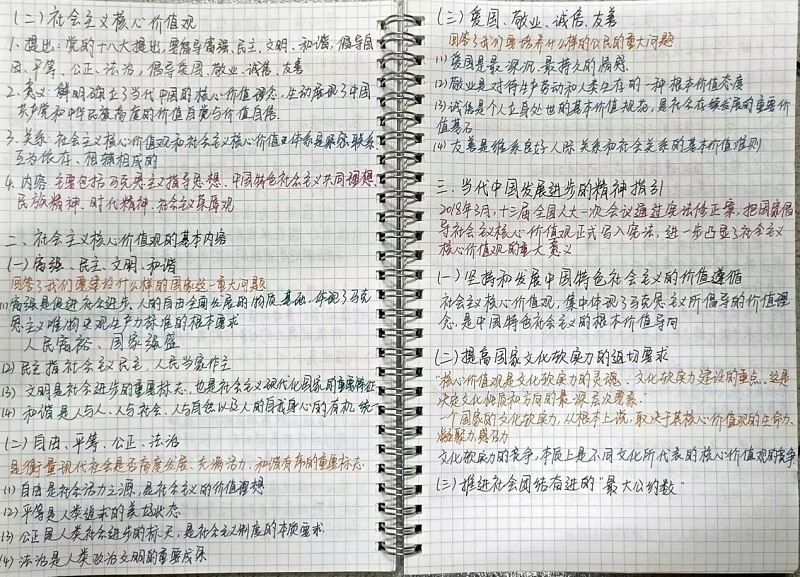 (二)社会主义核心价值观
1、提出:党的十八大提出,要倡导富强、民主、文明、和谐,倡导自
由、平等、公正、法治,倡导爱国、敬业、诚信、友善
2、意义:鲜明确立了当代中国的核心价值理念,生动展现了中国
共产党和中华民族高度的价值自觉与价值自信
3、关系:社会主义核心价值观和社会主义核心价值体系是紧密联系、
互为依存、相辅相成的
4、内容:主要包括马克思主义指导思想、中国特色社会主义共同理想、
民族精神、时代精神、社会主义荣辱观
二、社会主义核心价值观的基本内容
(一)富强、民主、文明、和谐
回答了我们要建设什么样的国家这一重大问题
(1)富强是促进社会进步、人的自由全面发展的物质基础,体现了马克
思主义唯物史观生产力标准的根本要求
人民富裕、国家强盛
(2)民主指社会主义民主,人民当家作主
(3)文明是社会进步的重要标志,也是社会主义现代化国家的重要特征
(4)和谐是人与人、人与社会、人与自然以及人的自我身心的有机统一
(二)自由、平等、公正、法治
是衡量现代社会是否高度发展、充满活力、和谐有序的重要标志
(1)自由是社会活力之源,是社会主义的价值理想
(2)平等是人类追求的美好状态
(3)公正是人类社会进步的标尺,是社会主义制度的本质要求
(4)法治是人类政治文明的重要成果
(三)爱国、敬业、诚信、友善
回答了我们要培养什么样的公民的重大问题
(1)爱国是最深沉、最持久的情感
(2)敬业是对待生产劳动和人类生存的一种根本价值态度
(3)诚信是个人立身处世的基本价值规范,是社会存续发展的重要价
值基石
(4)友善是维系良好人际关系和社会关系的基本价值准则
三、当代中国发展进步的精神指引
2018年3月,十三届全国人大一次会议通过宪法修正案,把国家倡
导社会主义核心价值观正式写入宪法,进一步凸显了社会主义
核心价值观的重大意义
(一)坚持和发展中国特色社会主义的价值遵循
社会主义核心价值观,集中体现了马克思主义所倡导的价值理
念,是中国特色社会主义的根本价值导向
(二)提高国家文化软实力的迫切要求
核心价值观是文化软实力的灵魂、文化软实力建设的重点。这是
决定文化性质和方向的最深层次要素。
一个国家的文化软实力,从根本上说,取决于其核心价值观的生命力、
凝聚力、感召力
文化软实力的竞争,本质上是不同文化所代表的核心价值观的竞争
(三)推进社会团结奋进的“最大公约数”